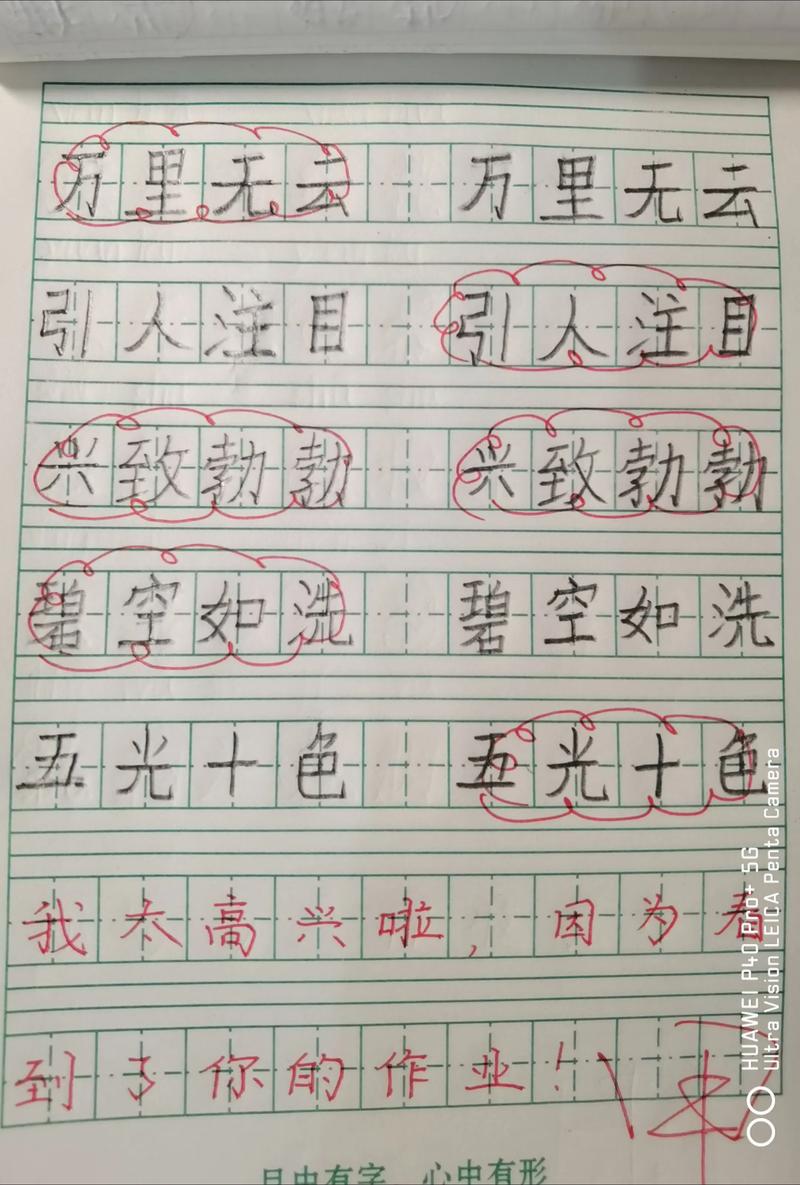 万里无云 万里无云
引人注目 引人注目
兴致勃勃 兴致勃勃
碧空如洗 碧空如洗
五光十色 五光十色
我太高兴啦，因为看
到了你的作业！
目中有字 心中有形
HUAWEI P40 Pro+ 5G
Ultra Vision LEICA Penta Camera